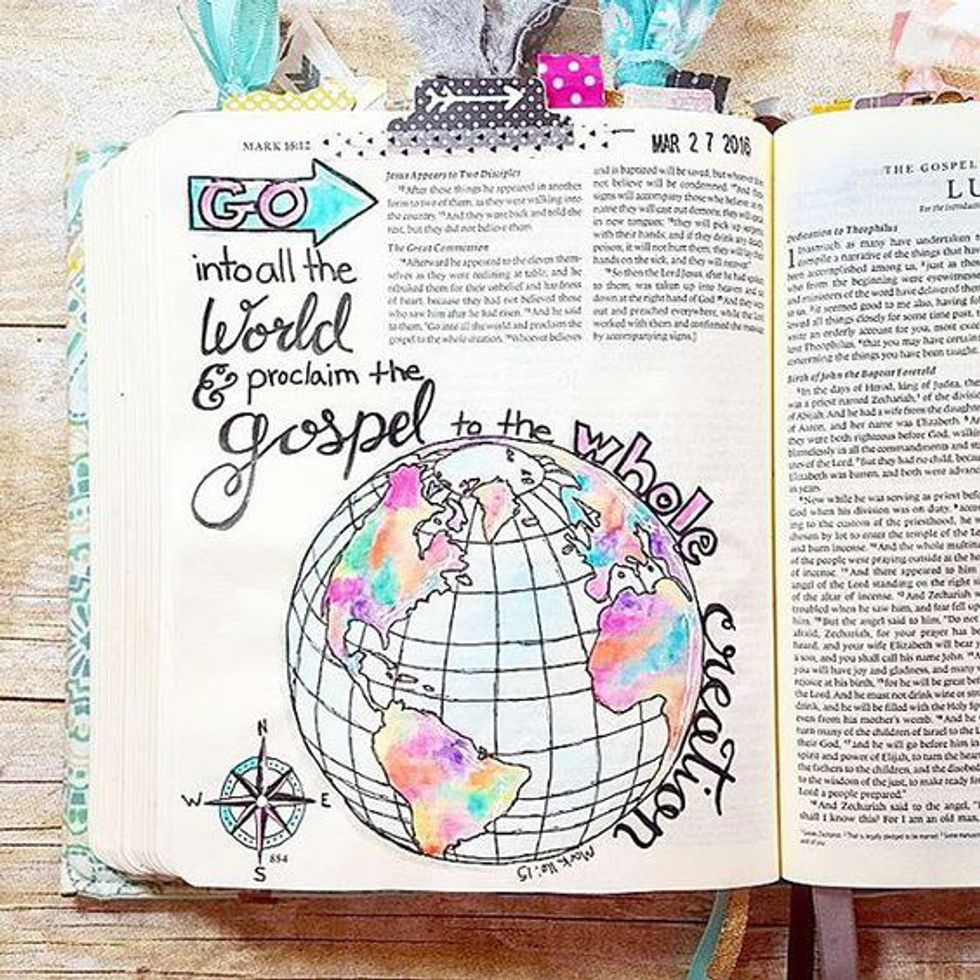 MARK 16:12
MAR 27 2016
GO
into all the
World
& proclaim the
gospel to the whole
creation
Mark 16:15
N
W E
S
884
Jesus Appears to Two Disciples
12After these things he appeared in another
form to two of them, as they were walking into
the country. 13And they went back and told the
rest, but they did not believe them.
The Great Commission
14Afterward he appeared to the eleven them-
selves as they were reclining at table, and he
rebuked them for their unbelief and hardness
of heart, because they had not believed those
who saw him after he had risen. 15And he said
to them, "Go into all the world and proclaim the
gospel to the whole creation. 16Whoever believes
and is baptized will be saved, but whoever does
not believe will be condemned. 17And these
signs will accompany those who believe: in my
name they will cast out demons; they will speak
in new tongues; 18they will pick up serpents
with their hands; and if they drink any deadly
poison, it will not hurt them; they will lay their
hands on the sick, and they will recover."
19So then the Lord Jesus, after he had spoken
to them, was taken up into heaven and sat
down at the right hand of God. 20And they went
out and preached everywhere, while the Lord
worked with them and confirmed the message
by accompanying signs.]
THE GOSPEL
LU
For the introduction
Dedication to Theophilus
1 Inasmuch as many have undertaken to
compile a narrative of the things that have
been accomplished among us, 2just as those
who from the beginning were eyewitnesses
and ministers of the word have delivered them
to us, 3it seemed good to me also, having fol
lowed all things closely for some time past,
write an orderly account for you, most ex
lent Theophilus, 4that you may have certain
concerning the things you have been taught.
Birth of John the Baptist Foretold
5In the days of Herod, king of Judea, the
was a priest named Zechariah, of the divisi
of Abijah. And he had a wife from the daugh
of Aaron, and her name was Elizabeth. 6An
they were both righteous before God, walki
blamelessly in all the commandments and
utes of the Lord. 7But they had no child, becau
Elizabeth was barren, and both were advan
in years.
8Now while he was serving as priest bef
God when his division was on duty, 9accor
ing to the custom of the priesthood, he
chosen by lot to enter the temple of the Lo
and burn incense. 10And the whole multitu
of the people were praying outside at the ho
of incense. 11And there appeared to him
angel of the Lord standing on the right
of the altar of incense. 12And Zechariah
troubled when he saw him, and fear fell up
him. 13But the angel said to him, "Do not
afraid, Zechariah, for your prayer has b
heard, and your wife Elizabeth will bear y
a son, and you shall call his name John. 14A
you will have joy and gladness, and many
rejoice at his birth, 15for he will be great bef
the Lord. And he must not drink wine or st
drink, and he will be filled with the Holy Sp
even from his mother's womb. 16And he w
turn many of the children of Israel to the L
their God, 17and he will go before him in
spirit and power of Elijah, to turn the heart
the fathers to the children, and the disobed
to the wisdom of the just, to make ready f
Lord a people prepared."
18And Zechariah said to the angel,
shall I know this? For I am an old man,